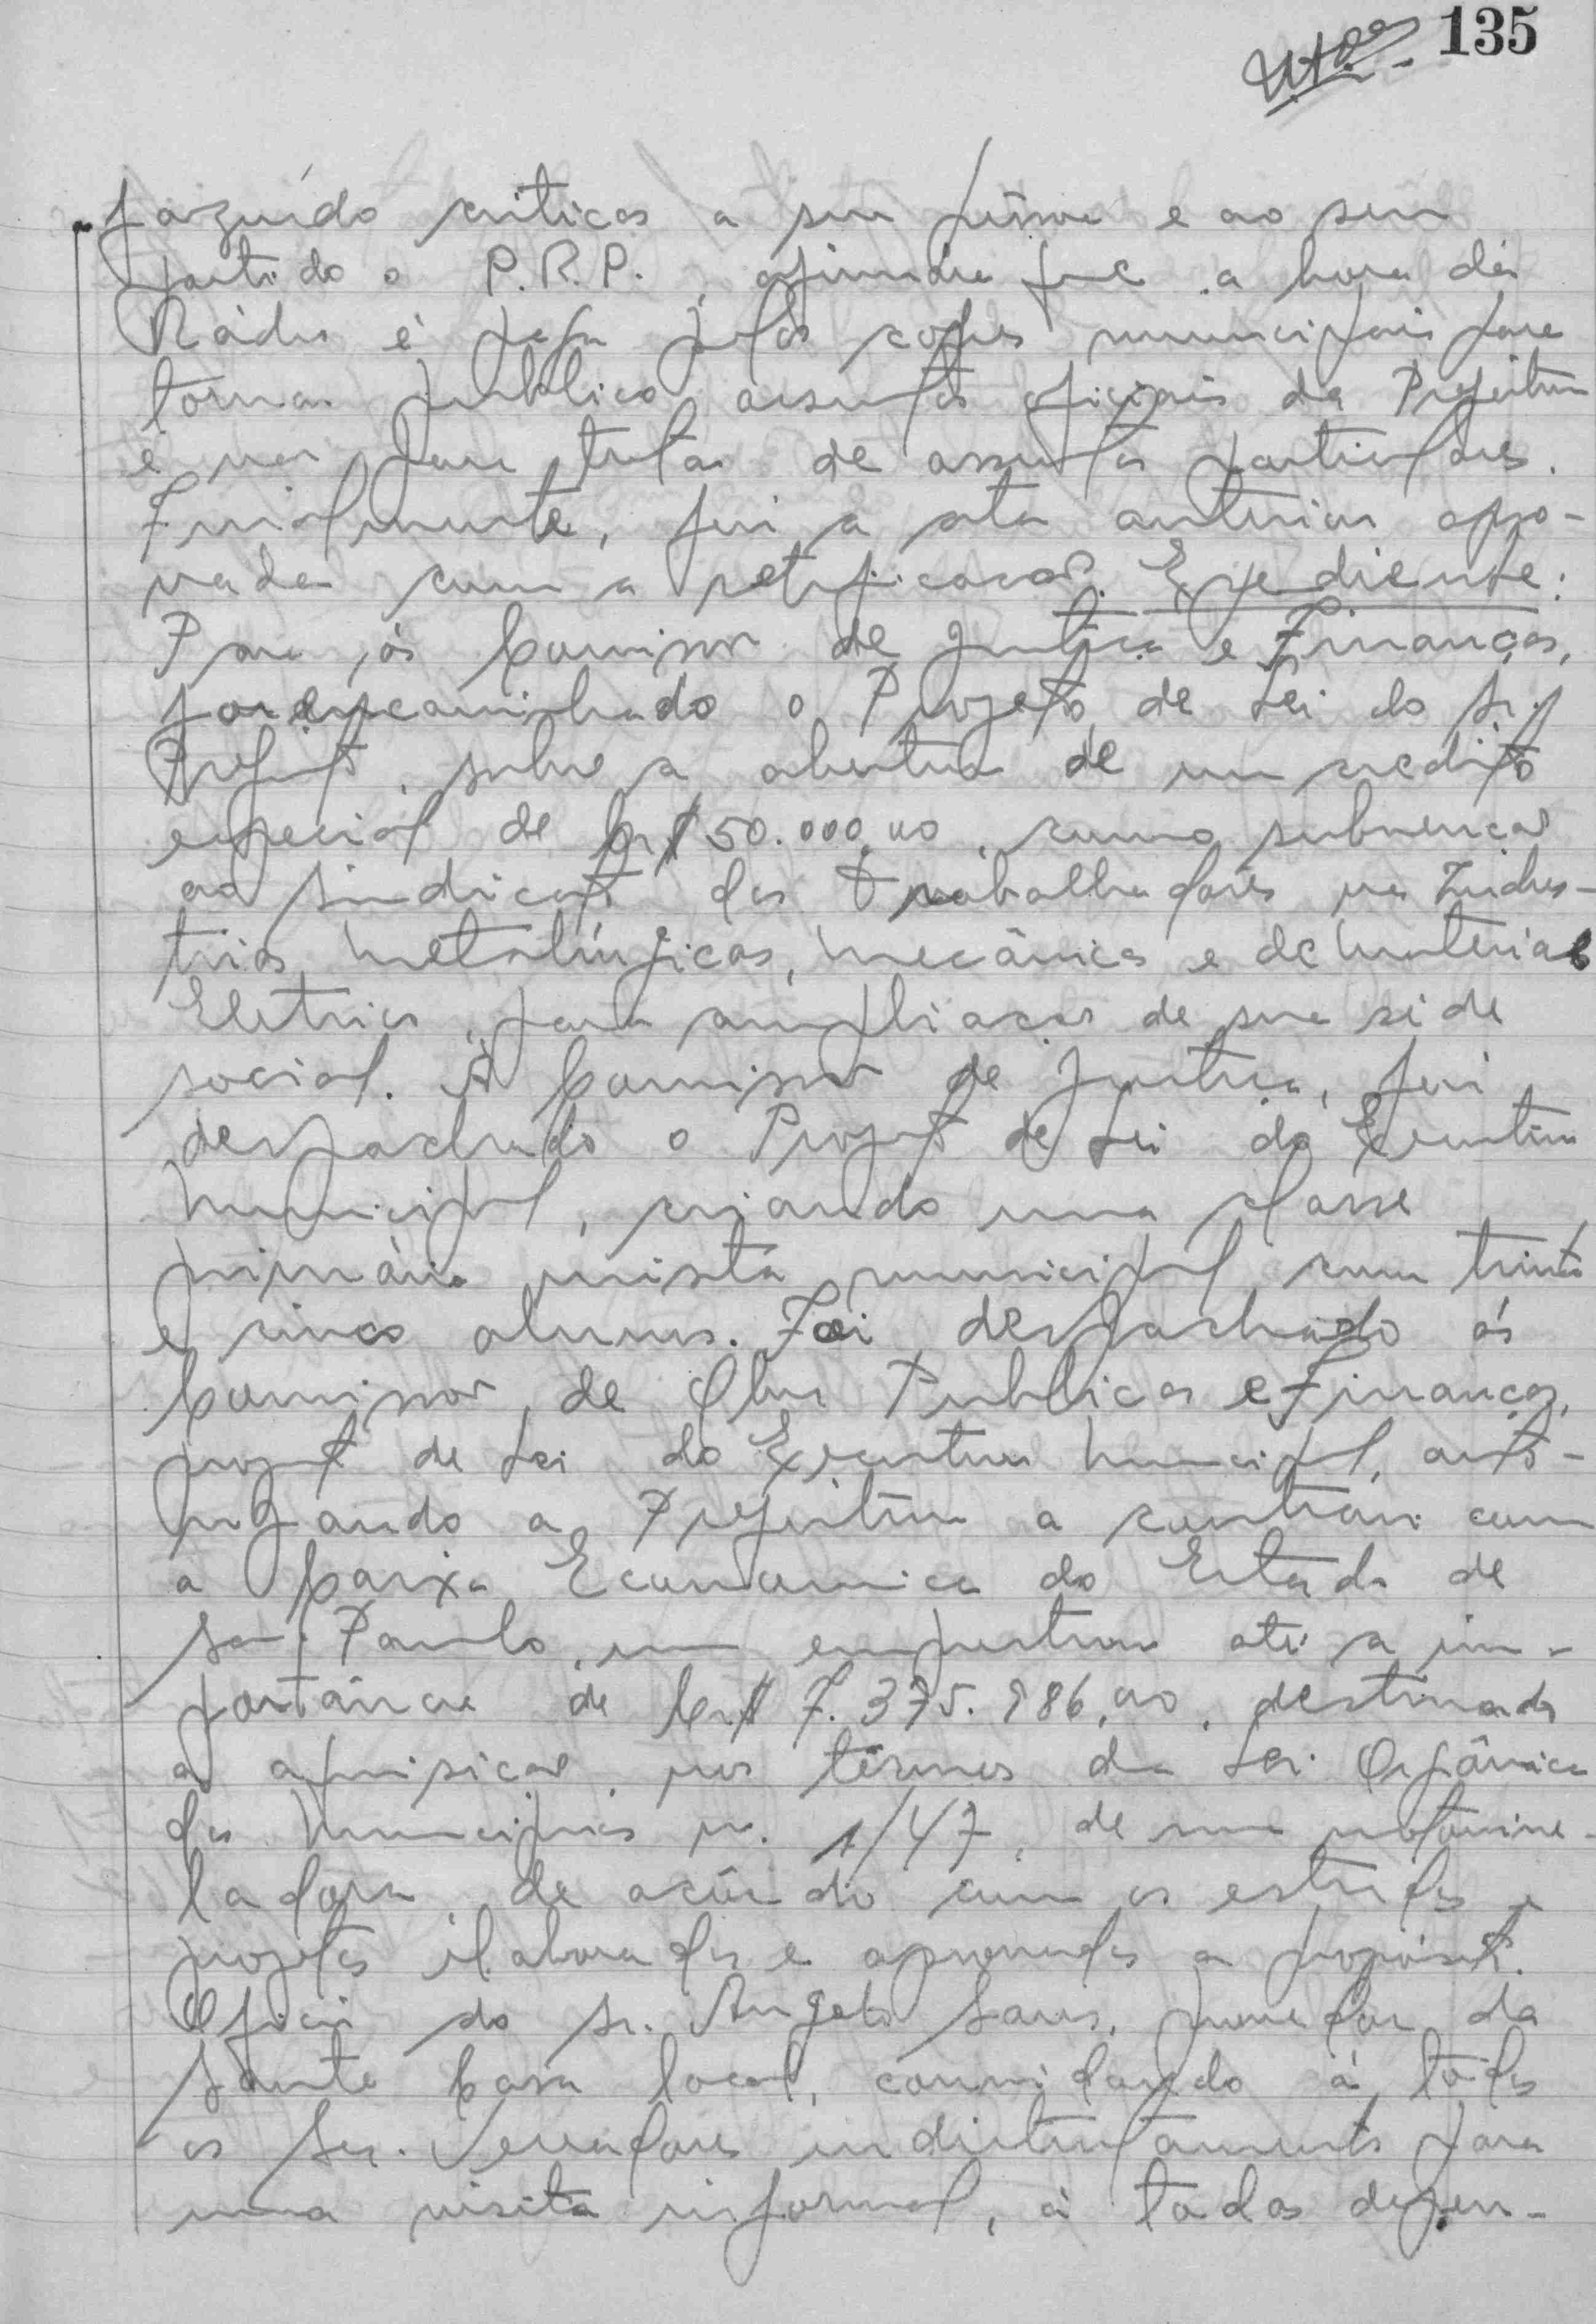 135
fazendo criticas a sua pessôa e ao seu
partido o P.R.P., afirmára que a hora da
Rádio é paga pelos cofres municipais para
tornar publico assuntos oficiais da Prefeitura
e não para tratar de assuntos particulares.
Finalmente, foi a ata anterior apro-
vada com a retificacão. Expediente:
Para ás Comissão de Justiça e Finanças,
foi encaminhado o Projeto de Lei do Sr.
Prefeito, sobre a abertura de um credito
especial de Cr$ 50.000,00, como subvenção
ao Sindicato dos Trabalhadores nas Indus-
trias Metalúrgicas, Mecânicas e de Material
Eletrico, para ampliação de sua séde
social. Á Comissão de Justiça, foi
despachado o Projeto de Lei do Executivo
Municipal, criando uma classe
primária mista municipal, com trinta
e cinco alunos. Foi despachado ás
Comissão de Obras Publicas e Finanças,
projeto de Lei do Executivo Municipal, auto-
rizando a Prefeitura a contrair com
a Caixa Economica do Estado de
São Paulo, um emprestimo até a im-
portância de Cr$ 7.375.986,00, destinado
a aquisição, nos têrmos da Lei Orgânica
dos Municipios n. 1/47, de uma motonive-
ladora, de acôrdo com os estudos e
projetos elaborados e aprovados a proposito.
Oficio do Sr. Angelo , provedor da
Santa Casa local, convidando á todos
os Srs. Vereadores indistintamente para
uma visita informal, á todas depen-